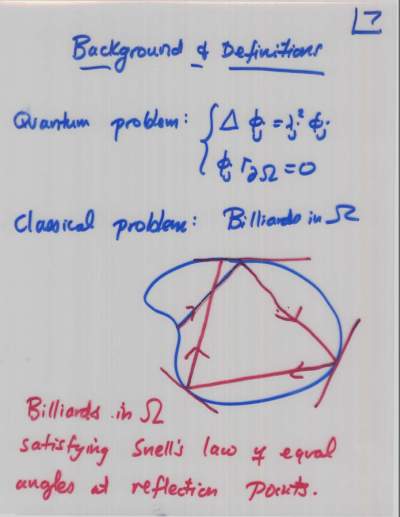 7
Background & Definitions
Quantum problem: { Δ φ_j = λ_j² φ_j
φ_j ↾∂Ω = 0
Classical problem: Billiards in Ω
Billiards in Ω
satisfying Snell's law of equal
angles at reflection points.